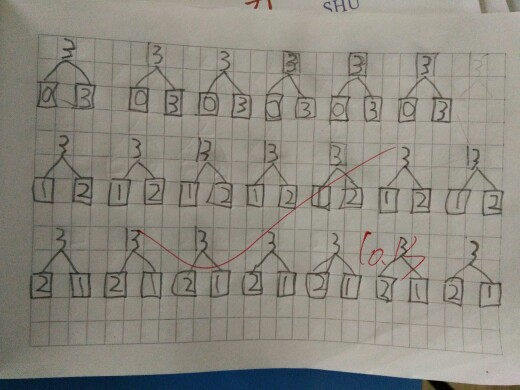 SHU
3 3 3 3 3 3
0 3 0 3 0 3 0 3 0 3 0 3
3 3 3 3 3 3 3
1 2 1 2 1 2 1 2 1 2 1 2 1 2
3 3 3 3 3 3 3
2 1 2 1 2 1 2 1 2 1 3 1 2 1